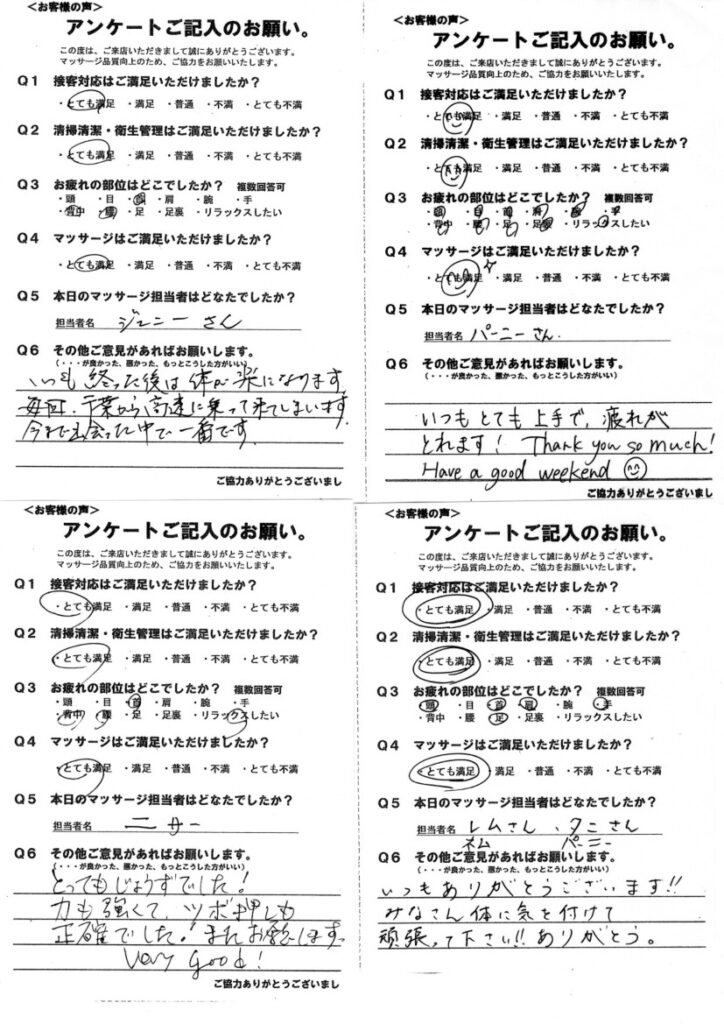 ＜お客様の声＞
アンケートご記入のお願い。
この度は、ご来店いただきまして誠にありがとうございます。
マッサージ品質向上のため、ご協力をお願いいたします。
Q1 接客対応はご満足いただけましたか？
・とても満足 ・満足 ・普通 ・不満 ・とても不満
Q2 清掃清潔・衛生管理はご満足いただけましたか？
・とても満足 ・満足 ・普通 ・不満 ・とても不満
Q3 お疲れの部位はどこでしたか？ 複数回答可
・頭 ・目 ・首 ・肩 ・腕 ・手
・背中 ・腰 ・足 ・足裏 ・リラックスしたい
Q4 マッサージはご満足いただけましたか？
・とても満足 ・満足 ・普通 ・不満 ・とても不満
Q5 本日のマッサージ担当者はどなたでしたか？
担当者名 ジェニーさん
Q6 その他ご意見があればお願いします。
（・・・が良かった、悪かった、もっとこうした方がいい）
いつも終った後は体が楽になります。
毎回、千葉から高速に乗って来てしまいます。
今まで出会った中で一番です。
ご協力ありがとうございまし
＜お客様の声＞
アンケートご記入のお願い。
この度は、ご来店いただきまして誠にありがとうございます。
マッサージ品質向上のため、ご協力をお願いいたします。
Q1 接客対応はご満足いただけましたか？
・とても満足 ・満足 ・普通 ・不満 ・とても不満
Q2 清掃清潔・衛生管理はご満足いただけましたか？
・とても満足 ・満足 ・普通 ・不満 ・とても不満
Q3 お疲れの部位はどこでしたか？ 複数回答可
・頭 ・目 ・首 ・肩 ・腕 ・手
・背中 ・腰 ・足 ・足裏 ・リラックスしたい
Q4 マッサージはご満足いただけましたか？
・とても満足 ・満足 ・普通 ・不満 ・とても不満
Q5 本日のマッサージ担当者はどなたでしたか？
担当者名 パーニーさん.
Q6 その他ご意見があればお願いします。
（・・・が良かった、悪かった、もっとこうした方がいい）
いつもとても上手で、疲れが
とれます！ Thank you so much!
Have a good weekend
ご協力ありがとうございまし
＜お客様の声＞
アンケートご記入のお願い。
この度は、ご来店いただきまして誠にありがとうございます。
マッサージ品質向上のため、ご協力をお願いいたします。
Q1 接客対応はご満足いただけましたか？
・とても満足 ・満足 ・普通 ・不満 ・とても不満
Q2 清掃清潔・衛生管理はご満足いただけましたか？
・とても満足 ・満足 ・普通 ・不満 ・とても不満
Q3 お疲れの部位はどこでしたか？ 複数回答可
・頭 ・目 ・首 ・肩 ・腕 ・手
・背中 ・腰 ・足 ・足裏 ・リラックスしたい
Q4 マッサージはご満足いただけましたか？
・とても満足 ・満足 ・普通 ・不満 ・とても不満
Q5 本日のマッサージ担当者はどなたでしたか？
担当者名 ニサー
Q6 その他ご意見があればお願いします。
（・・・が良かった、悪かった、もっとこうした方がいい）
とってもじょうずでした！
力も強くて、ツボ押しも
正確でした！またお願いします。
Very Good!
ご協力ありがとうございまし
＜お客様の声＞
アンケートご記入のお願い。
この度は、ご来店いただきまして誠にありがとうございます。
マッサージ品質向上のため、ご協力をお願いいたします。
Q1 接客対応はご満足いただけましたか？
・とても満足 ・満足 ・普通 ・不満 ・とても不満
Q2 清掃清潔・衛生管理はご満足いただけましたか？
・とても満足 ・満足 ・普通 ・不満 ・とても不満
Q3 お疲れの部位はどこでしたか？ 複数回答可
・頭 ・目 ・首 ・肩 ・腕 ・手
・背中 ・腰 ・足 ・足裏 ・リラックスしたい
Q4 マッサージはご満足いただけましたか？
・とても満足 ・満足 ・普通 ・不満 ・とても不満
Q5 本日のマッサージ担当者はどなたでしたか？
担当者名 レムさん、タニさん
ネム パーニー
Q6 その他ご意見があればお願いします。
（・・・が良かった、悪かった、もっとこうした方がいい）
いつもありがとうございます!!
みなさん体に気を付けて
頑張って下さい!! ありがとう。